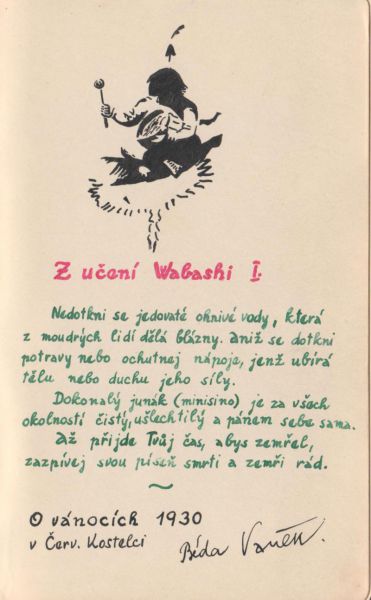 Z učení Wabashi I.
Nedotkni se jedovaté ohnivé vody, která
z moudrých lidí dělá blázny. Aniž se dotkni
potravy nebo ochutnej nápoje, jenž ubírá
tělu nebo duchu jeho síly.
Dokonalý junák (minisino) je za všech
okolností čistý, ušlechtilý a pánem sebe sama.
Až přijde Tvůj čas, abys zemřel,
zazpívej svou píseň smrti a zemři rád.
O vánocích 1930
v Červ. Kostelci
Béda Vaněk.